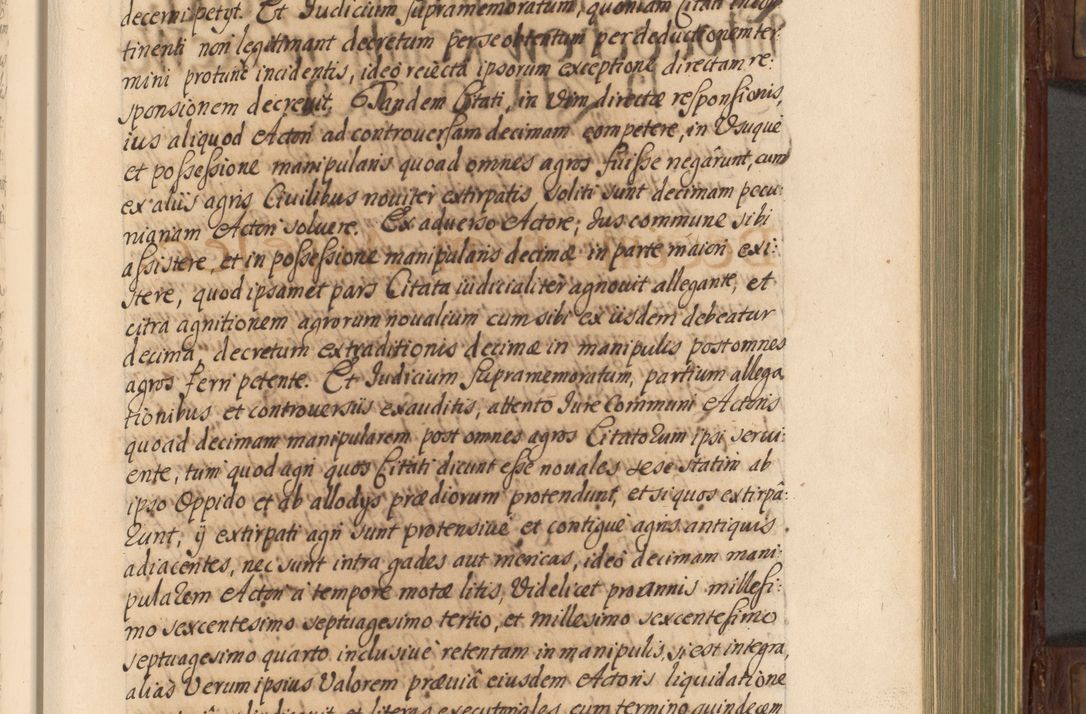 decerni petyt. Et Iudicium supramemoratum, quoniam Citati
tinenti non legitimant decretum per se obtentum per deductionem ter
mini protunc incidentis, ideo reiecta ipsorum exceptione directam re:
sponsionem decrevit. Tandem Citati, in vim directæ responsionis,
ius aliquod Actori ad controversam decimam competere, in Usuque
et possessione manipularis quoad omnes agros fuisse negârunt, cum
ex aliis agris Civilibus noviter extirpatis soliti sunt decimam pecu:
niariam Actori solvere. Ex adverso Actore, Ius commune sibi
assistere, et in possessione manipularis decimæ in parte maiori exi:
stere, quod ipsamet pars Citata iudicialiter agnovit allegante, et
citra agnitionem agrorum novalium cum sibi ex iisdem debeatur
decima, decretum extraditionis decimæ in manipulis post omnes
agros ferri petente. Et Iudicium supramemoratum, partium allega
tionibus et controversiis exauditis, attento Iure Communi Actoris
quoad decimam manipularem post omnes agros Citatorum ipsi servi:
ente, tum quod agri quos Citati dicunt esse novales sese statim ab
ipso Oppido et ab allodys prædiorum protendunt, et si quos extirpâ:
runt, ij extirpati agri sunt protensive et contigue agris antiquis
adiacentes, nec sunt intra gades aut mericas, ideo decimam mani:
pularem Actori a tempore motæ litis, videlicet pro annis millesi:
mo sexcentesimo septuagesimo tertio, et millesimo sexcentesimo
septuagesimo quarto inclusive retentam in manipulis, si est integra,
alias verum ipsius valorem præviâ eiusdem Actoris liquidatione
et literas executoriales cum termino quindecem